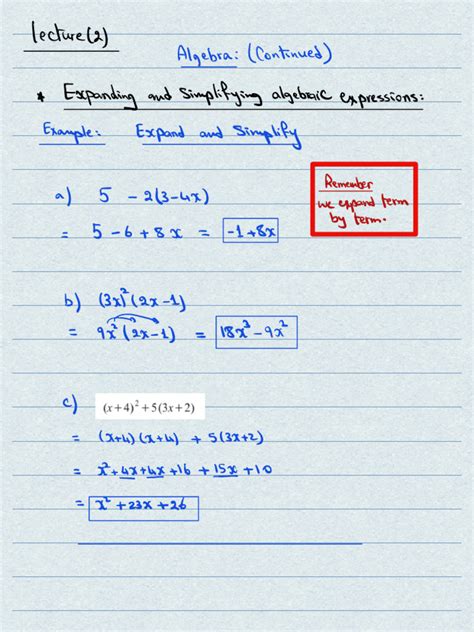 lecture(2)
Algebra: (Continued)
* Expanding and Simplifying algebraic expressions:
Example: Expand and Simplify
Remember
we expand term
by term.
a) 5 - 2(3-4x)
= 5 - 6 + 8x = -1+8x
b) (3x)² (2x-1)
= 9x² (2x-1) = 18x³ - 9x²
c) (x+4)² + 5(3x+2)
= (x+4)(x+4) + 5(3x+2)
= x² + 4x + 4x + 16 + 15x + 10
= x² + 23x + 26